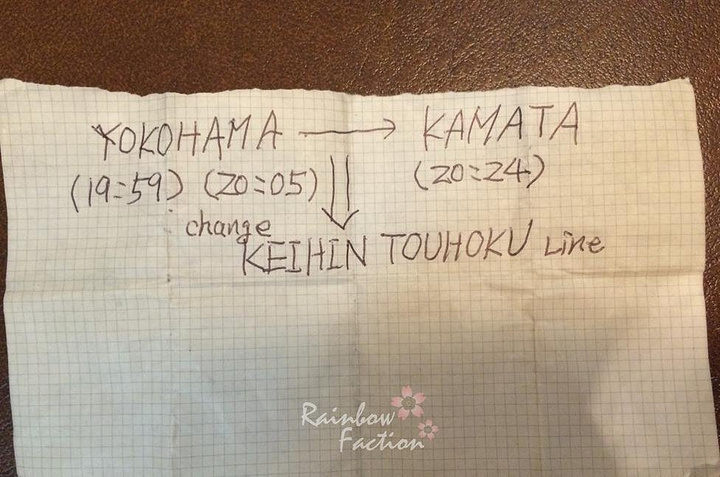 YOKOHAMA → KAMATA
(19:59) (20:05) (20:24)
change
KEIHIN TOUHOKU Line
Rainbow
Faction